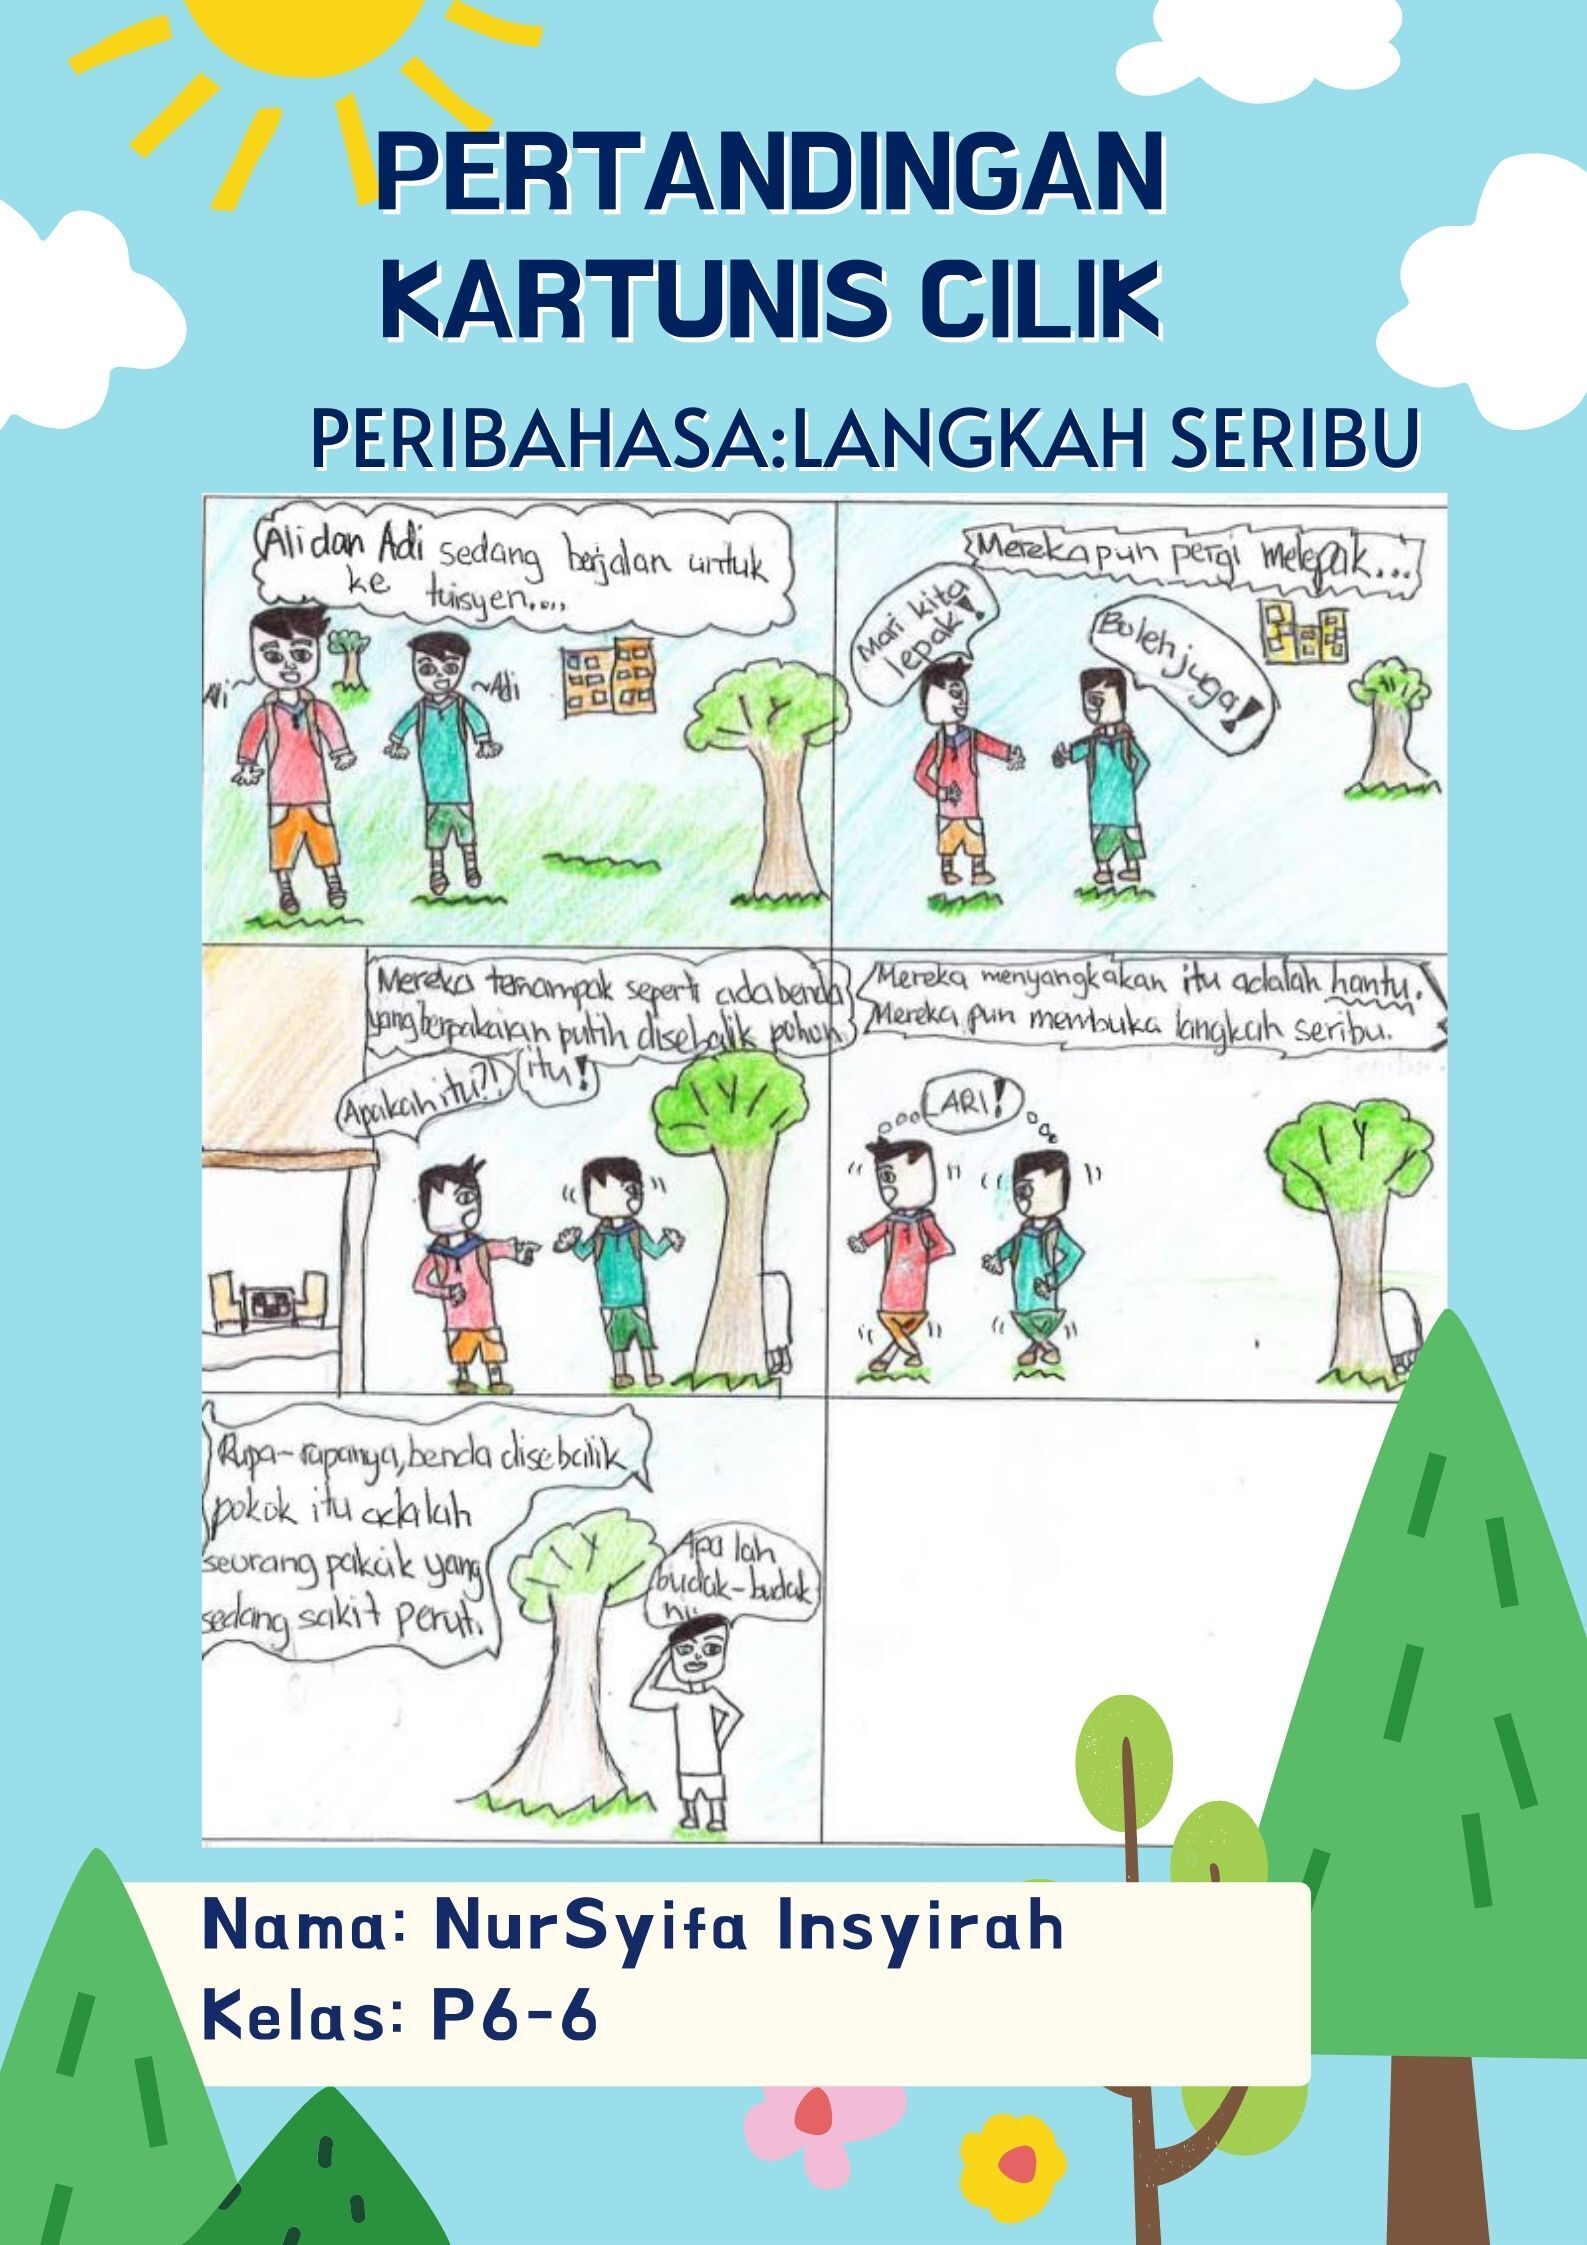 PERTANDINGAN
KARTUNIS CILIK
PERIBAHASA:LANGKAH SERIBU
Ali dan Adi sedang berjalan untuk
ke tuisyen....
Ali
Adi
Mereka pun pergi melepak...
Mari kita
lepak!
Boleh juga!
Mereka ternampak seperti ada benda
yang berpakaian putih disebalik pohon
itu!
Apakah itu?!
Mereka menyangkakan itu adalah hantu.
Mereka pun membuka langkah seribu.
LARI!
Rupa-rupanya, benda disebalik
pokok itu adalah
seorang pakcik yang
sedang sakit perut.
Apa lah
budak-budak
ni.
Nama: NurSyifa Insyirah
Kelas: P6-6